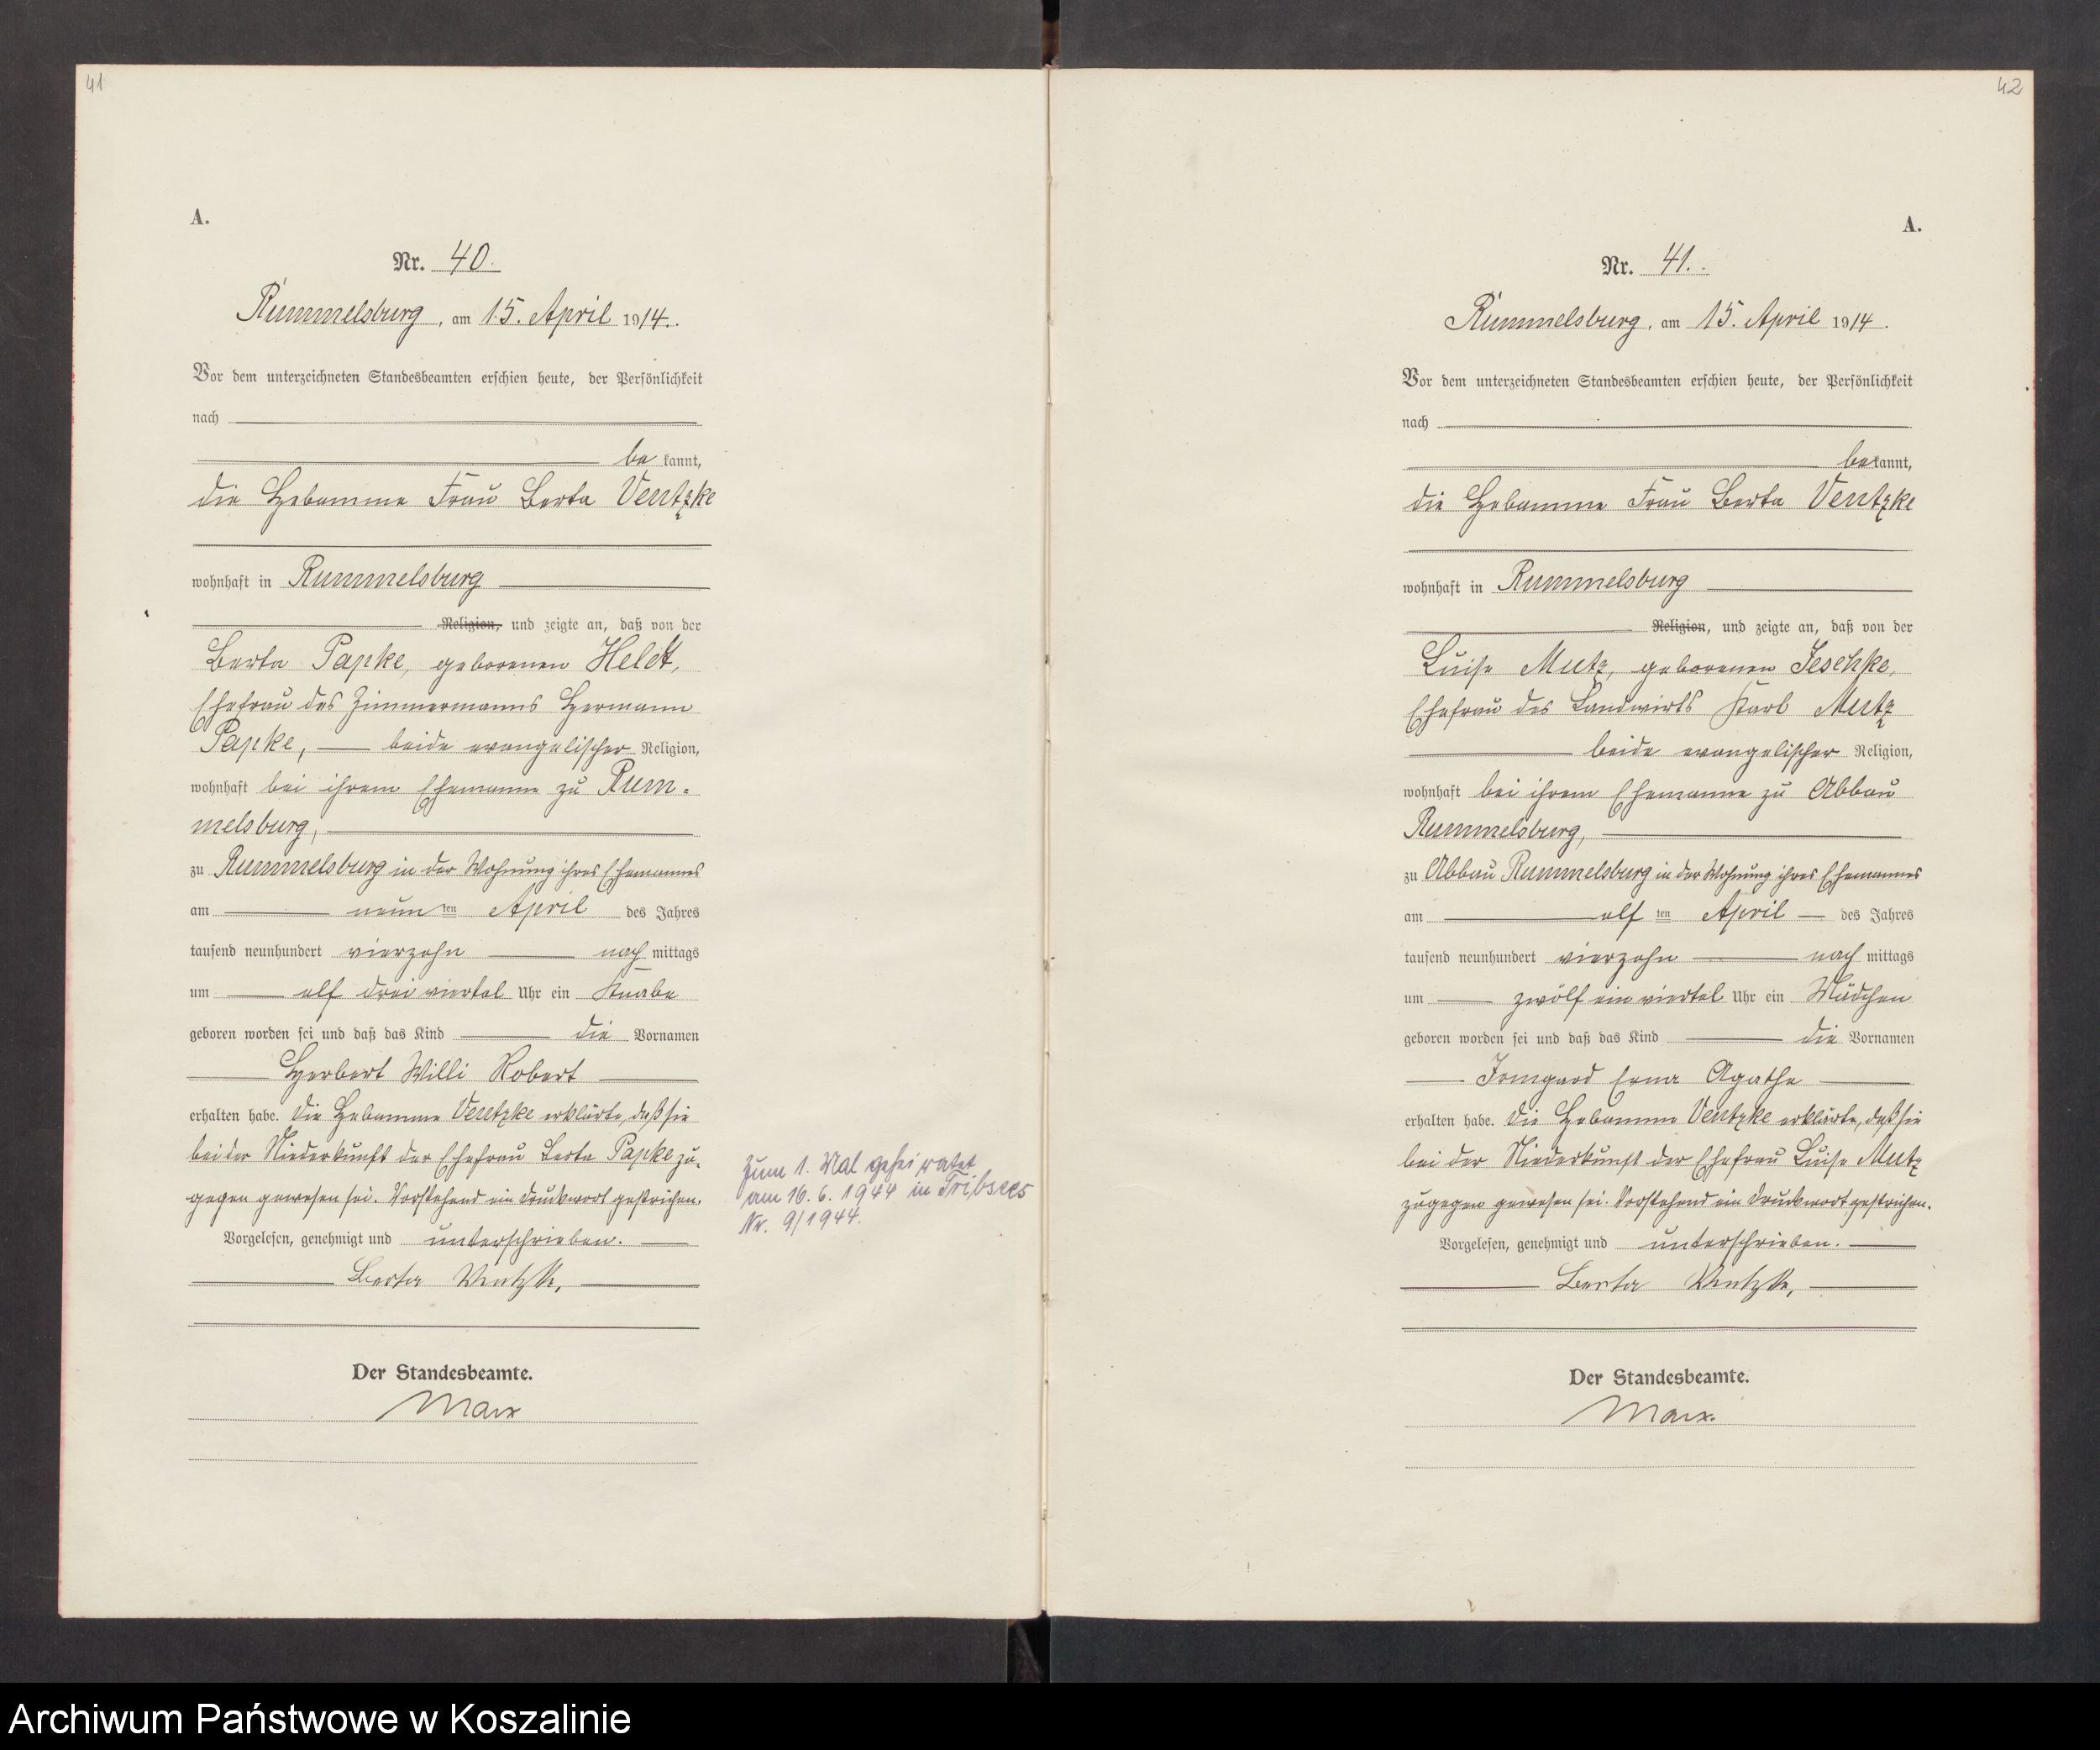 41
A.
Nr. 40.
Rummelsburg, am 15. April 1914.
Vor dem unterzeichneten Standesbeamten erschien heute, der Persönlichkeit
nach
be kannt,
die Hebamme Frau Berta Ventzke
wohnhaft in Rummelsburg
Religion, und zeigte an, daß von der
Berta Papke, geborenen Heldt,
Ehefrau des Zimmermanns Hermann
Papke, beide evangelischer Religion,
wohnhaft bei ihrem Ehemanne zu Rum-
melsburg,
zu Rummelsburg in der Wohnung ihres Ehemannes
am neun ten April des Jahres
tausend neunhundert vierzehn nach mittags
um elf drei viertel Uhr ein Knabe
geboren worden sei und daß das Kind die Vornamen
Herbert Willi Robert
erhalten habe. Die Hebamme Ventzke erklärte, daß sie
bei der Niederkunft der Ehefrau Berta Papke zu-
gegen gewesen sei. Vorstehend ein Druckwort gestrichen.
Vorgelesen, genehmigt und unterschrieben.
Berta Ventzke,
Der Standesbeamte.
Marx
Zum 1. Mal geheiratet
am 16. 6. 1944 in Tribsees
Nr. 9/1944.
42
A.
Nr. 41.
Rummelsburg, am 15. April 1914.
Vor dem unterzeichneten Standesbeamten erschien heute, der Persönlichkeit
nach
bekannt,
die Hebamme Frau Berta Ventzke
wohnhaft in Rummelsburg
Religion, und zeigte an, daß von der
Luise Mutz, geborenen Jeschke,
Ehefrau des Landwirts Karl Mutz
beide evangelischer Religion,
wohnhaft bei ihrem Ehemanne zu Abbau
Rummelsburg,
zu Abbau Rummelsburg in der Wohnung ihres Ehemannes
am elf ten April des Jahres
tausend neunhundert vierzehn nach mittags
um zwölf ein viertel Uhr ein Mädchen
geboren worden sei und daß das Kind die Vornamen
Irmgard Erna Agathe
erhalten habe. Die Hebamme Ventzke erklärte, daß sie
bei der Niederkunft der Ehefrau Luise Mutz
zugegen gewesen sei. Vorstehend ein Druckwort gestrichen.
Vorgelesen, genehmigt und unterschrieben.
Berta Ventzke,
Der Standesbeamte.
Marx.
Archiwum Państwowe w Koszalinie